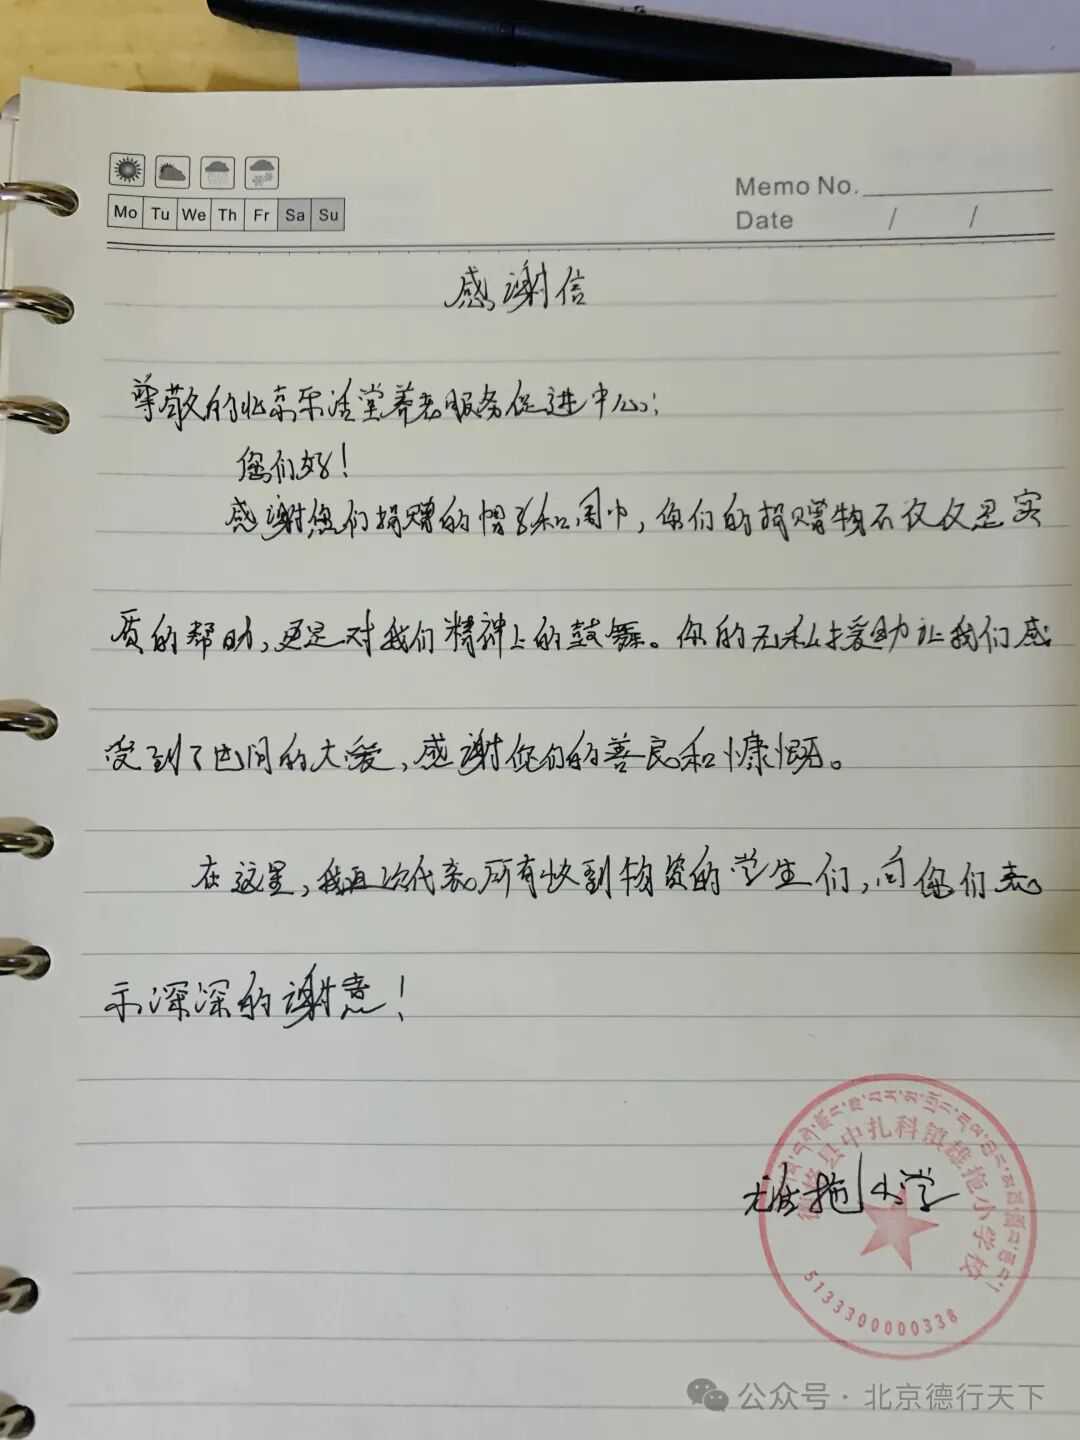 Mo Tu We Th Fr Sa Su
Memo No.
Date / /
感谢信
尊敬的北京乐活堂养老服务促进中心:
您们好!
感谢您们捐赠的帽子和围巾,您们的捐赠物不仅仅是实
质的帮助,更是对我们精神上的鼓舞。你的无私援助让我们感
受到了世间的大爱,感谢您们的善良和慷慨。
在这里,我再次代表所有收到物资的学生们,向您们表
示深深的谢意!
雄拖小学
德格县中扎科镇雄拖小学校
5133300000338
公众号·北京德行天下